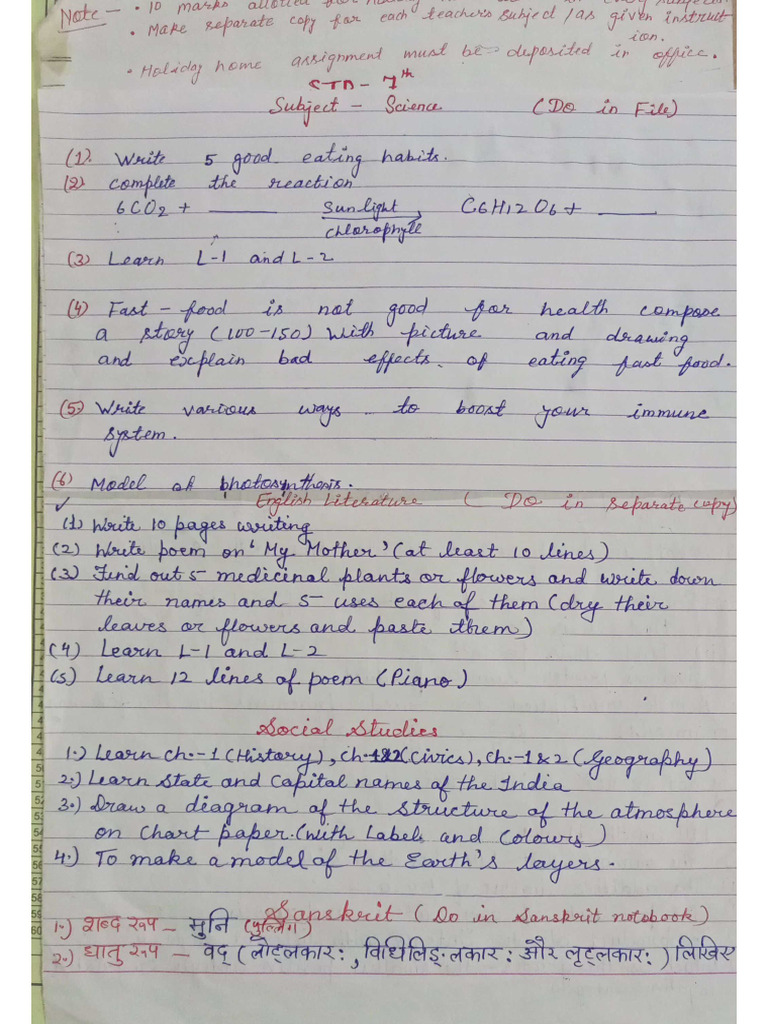 Note - • 10 marks allotted for
• Make separate copy for each teacher's subject/as given instruct
ion.
• Holiday home assignment must be deposited in office.
STD - 7th
Subject - Science (Do in File)
(1). Write 5 good eating habits.
(2) complete the reaction
6CO2 + ____ Sunlight C6H12O6 + ____
chlorophyll
(3) Learn L-1 and L-2
(4) Fast - food is not good for health compose
a story (100-150) with picture and drawing
and explain bad effects of eating fast food.
(5) Write various ways to boost your immune
system.
(6) Model of photosynthesis.
English Literature ( Do in separate copy)
(1) Write 10 pages writing
(2) Write poem on 'My Mother' (at least 10 lines)
(3) Find out 5 medicinal plants or flowers and write down
their names and 5 uses each of them (dry their
leaves or flowers and paste them)
(4) Learn L-1 and L-2
(5) Learn 12 lines of poem (Piano)
Social Studies
1.) Learn ch.-1 (History), ch-1&2 (civics), ch.-1 & 2 (Geography)
2.) Learn State and Capital names of the India
3.) Draw a diagram of the structure of the atmosphere
on chart paper. (with Labels and Colours)
4.) To make a model of the Earth's layers.
Sanskrit ( Do in Sanskrit notobook)
1.) शब्द रूप - मुनि (पुल्लिंग)
2.) धातु रूप - वद् (लोट्लकारः, विधिलिङ्लकारः और लृट्लकारः) लिखिए